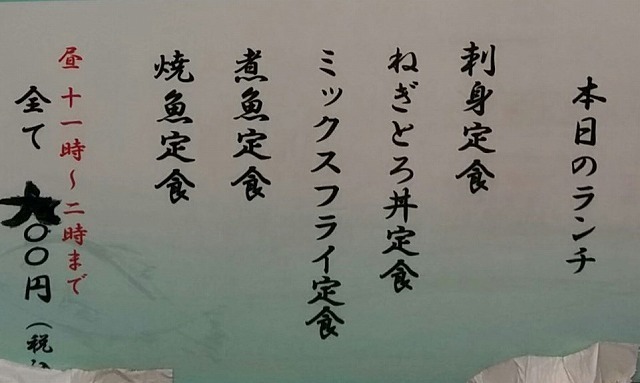 本日のランチ
刺身定食
ねぎとろ丼定食
ミックスフライ定食
煮魚定食
焼魚定食
昼 十一時～二時まで
全て 〇〇円（税